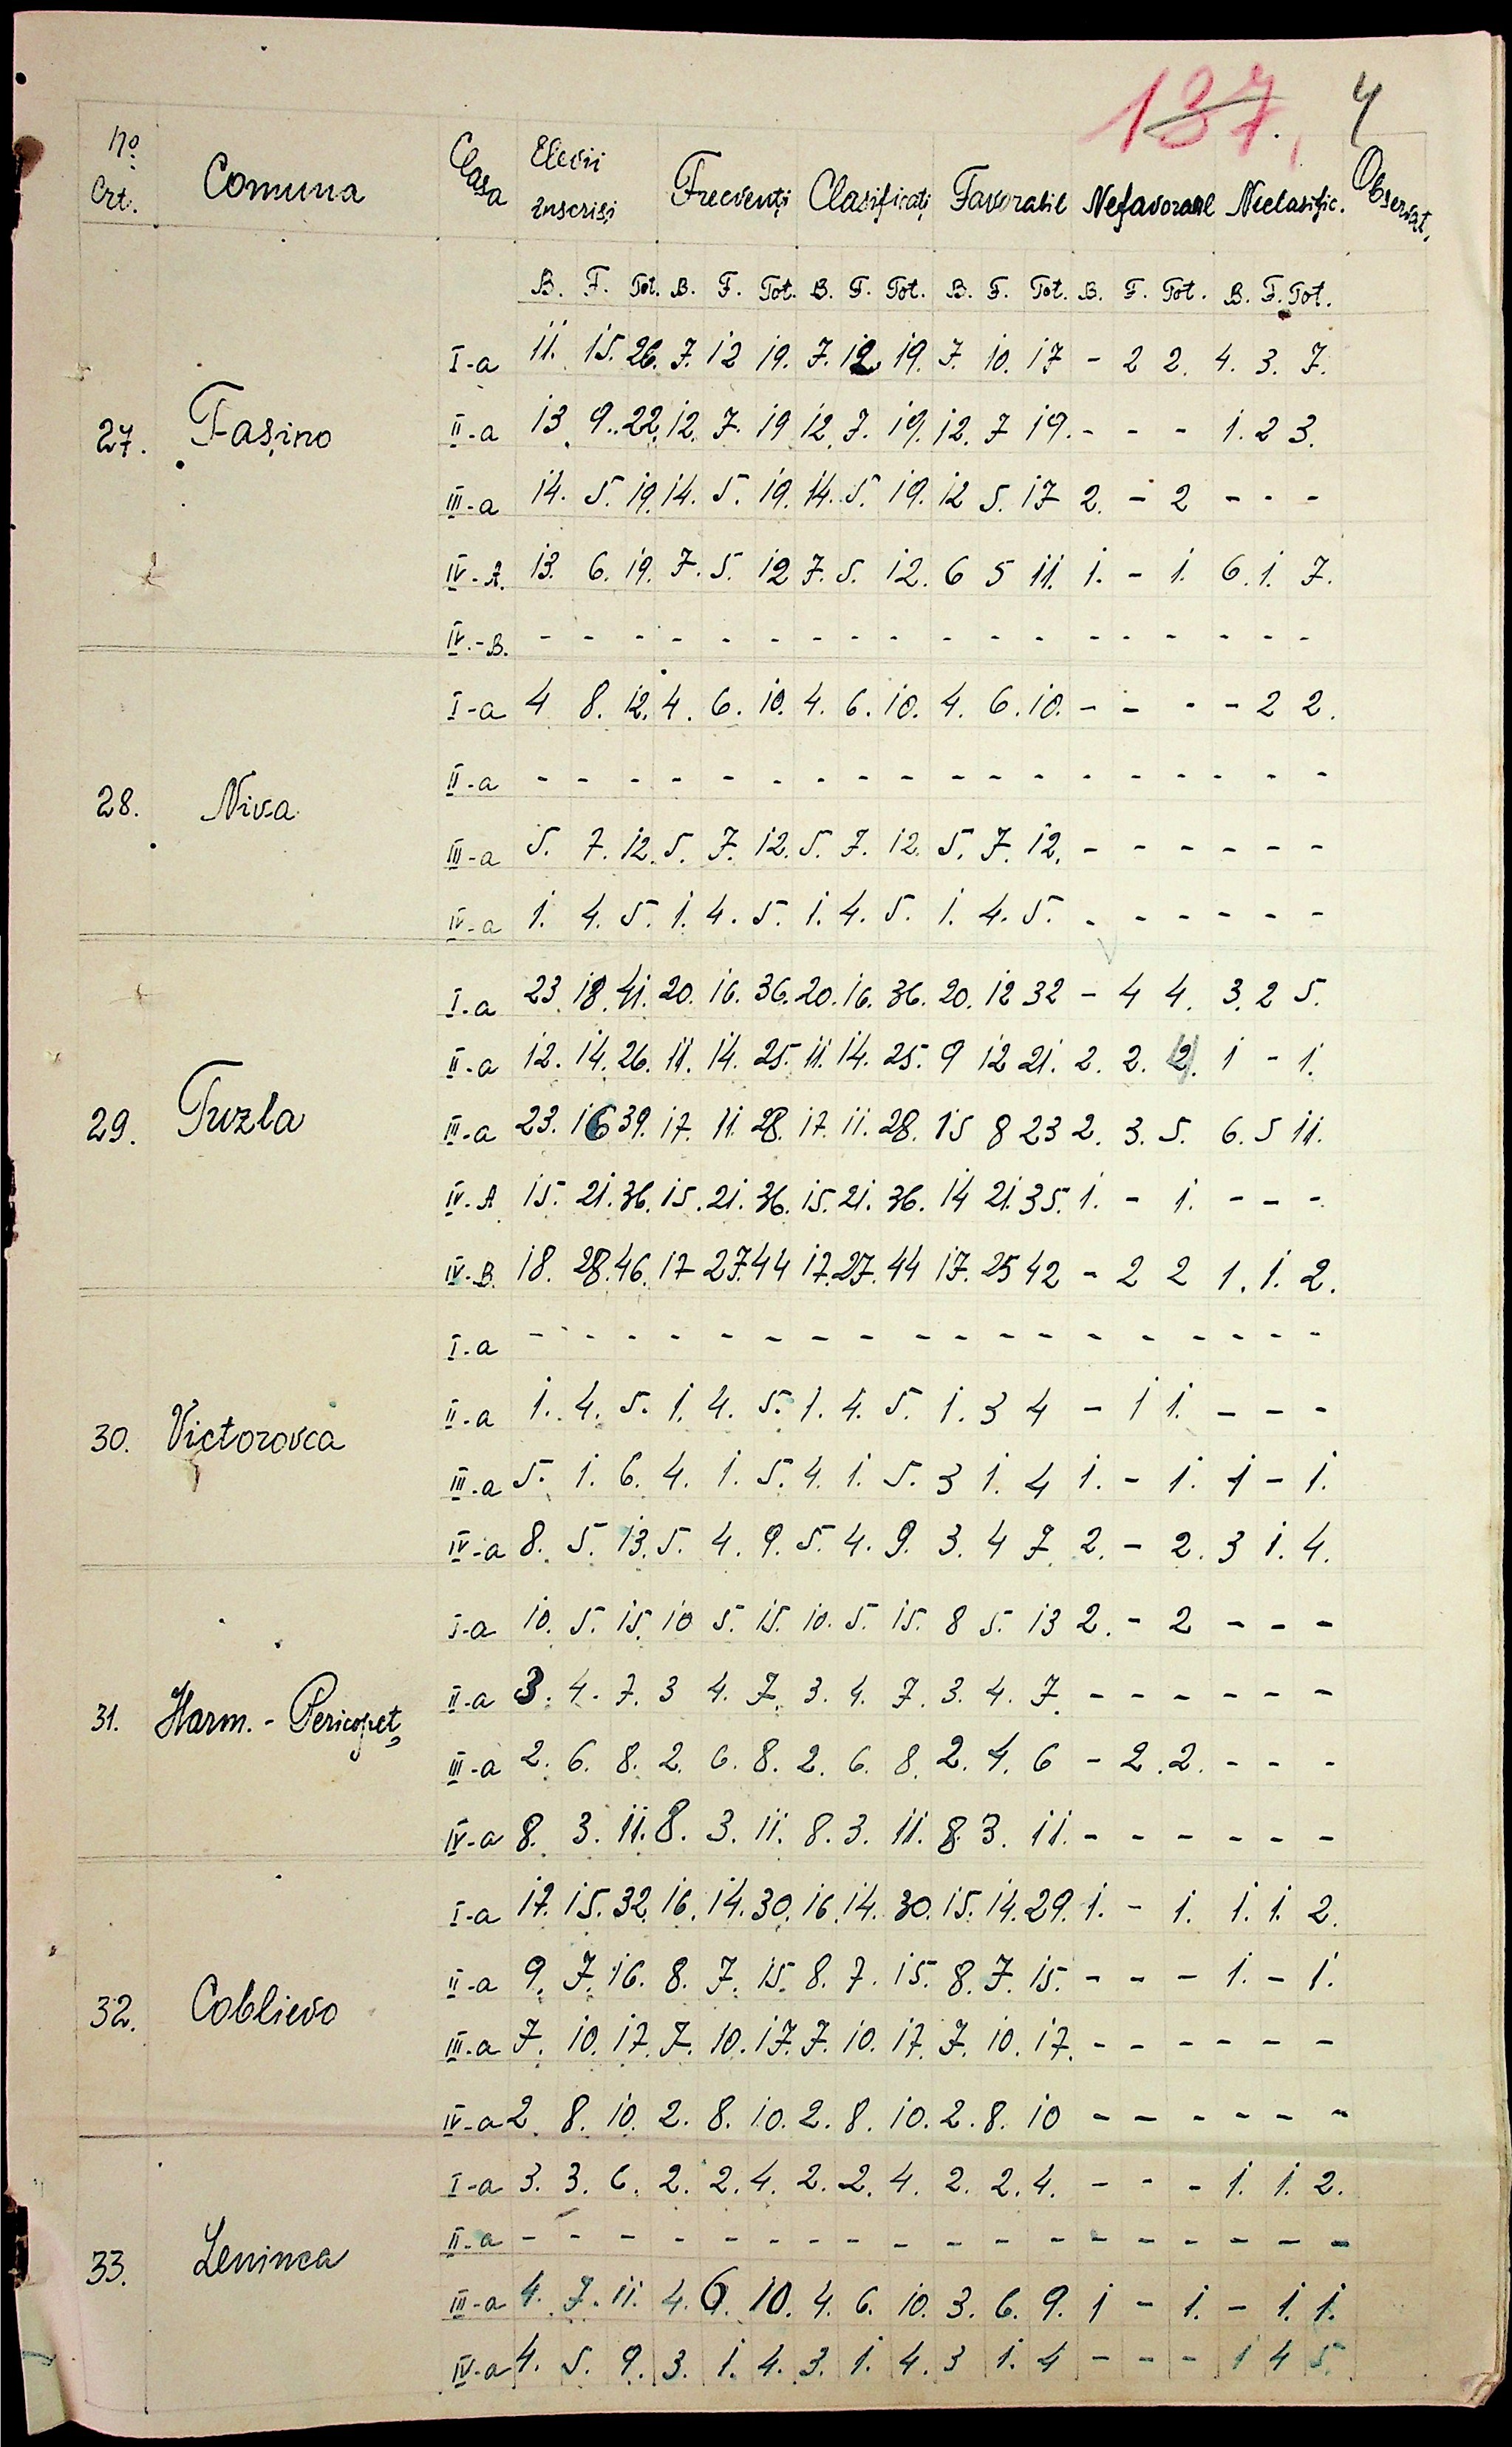 137. 4
No Crt. Comuna Clasa Elevii înscriși Frecvenți Clasificați Favorabil Nefavorabil Neclasific. Observat.
B. F. Tot. B. F. Tot. B. F. Tot. B. F. Tot. B. F. Tot. B. F. Tot.
I-a 11. 15. 26. 7. 12 19. 7. 12. 19. 7. 10. 17 - 2 2. 4. 3. 7.
27. Fașino II-a 13. 9. 22. 12. 7. 19 12. 7. 19. 12. 7 19. - - - 1. 2 3.
III-a 14. 5. 19. 14. 5. 19. 14. 5. 19. 12 5. 17 2. - 2 - - -
IV-A. 13. 6. 19. 7. 5. 12 7. 5. 12. 6 5 11. 1. - 1. 6. 1. 7.
IV.-B. - - - - - - - - - - - - - - - - - -
I-a 4 8. 12. 4. 6. 10. 4. 6. 10. 4. 6. 10. - - - - 2 2.
28. Niva II-a - - - - - - - - - - - - - - - - - -
III-a 5. 7. 12. 5. 7. 12. 5. 7. 12. 5. 7. 12. - - - - - -
IV-a 1. 4. 5. 1. 4. 5. 1. 4. 5. 1. 4. 5. - - - - - -
I.a 23 18. 41. 20. 16. 36. 20. 16. 36. 20. 12 32 - 4 4. 3. 2 5.
II-a 12. 14. 26. 11. 14. 25. 11. 14. 25. 9 12 21. 2. 2. 4. 1 - 1.
29. Tuzla III-a 23. 16 39. 17. 11. 28. 17. 11. 28. 15 8 23 2. 3. 5. 6. 5 11.
IV.A 15. 21. 36. 15. 21. 36. 15. 21. 36. 14 21. 35. 1. - 1. - - -
IV-B. 18. 28. 46. 17 27. 44 17. 27. 44 17. 25 42 - 2 2 1. 1. 2.
I.a - - - - - - - - - - - - - - - - - -
II-a 1. 4. 5. 1. 4. 5. 1. 4. 5. 1. 3 4 - 1 1. - - -
30. Victorovca III.a 5. 1. 6. 4. 1. 5. 4. 1. 5. 3 1. 4 1. - 1. 1 - 1.
IV-a 8. 5. 13. 5. 4. 9. 5. 4. 9. 3. 4 7. 2. - 2. 3 1. 4.
I-a 10. 5. 15. 10 5. 15. 10. 5. 15. 8 5. 13 2. - 2 - - -
31. Harm. - Pericopeț II-a 3. 4. 7. 3 4. 7. 3. 4. 7. 3. 4. 7. - - - - - -
III-a 2. 6. 8. 2. 6. 8. 2. 6. 8. 2. 4. 6 - 2. 2. - - -
IV-a 8. 3. 11. 8. 3. 11. 8. 3. 11. 8. 3. 11. - - - - - -
I-a 17. 15. 32. 16. 14. 30. 16. 14. 30. 15. 14. 29. 1. - 1. 1. 1. 2.
II-a 9. 7. 16. 8. 7. 15. 8. 7. 15. 8. 7. 15. - - - 1. - 1.
32. Coblievo III-a 7. 10. 17. 7. 10. 17. 7. 10. 17. 7. 10. 17. - - - - - -
IV-a 2. 8. 10. 2. 8. 10. 2. 8. 10. 2. 8. 10 - - - - - -
I-a 3. 3. 6. 2. 2. 4. 2. 2. 4. 2. 2. 4. - - - 1. 1. 2.
33. Leninca II-a - - - - - - - - - - - - - - - - - -
III-a 4. 7. 11. 4. 6. 10. 4. 6. 10. 3. 6. 9. 1 - 1. - 1. 1.
IV-a 4. 5. 9. 3. 1. 4. 3. 1. 4. 3 1. 4 - - - 1 4 5.